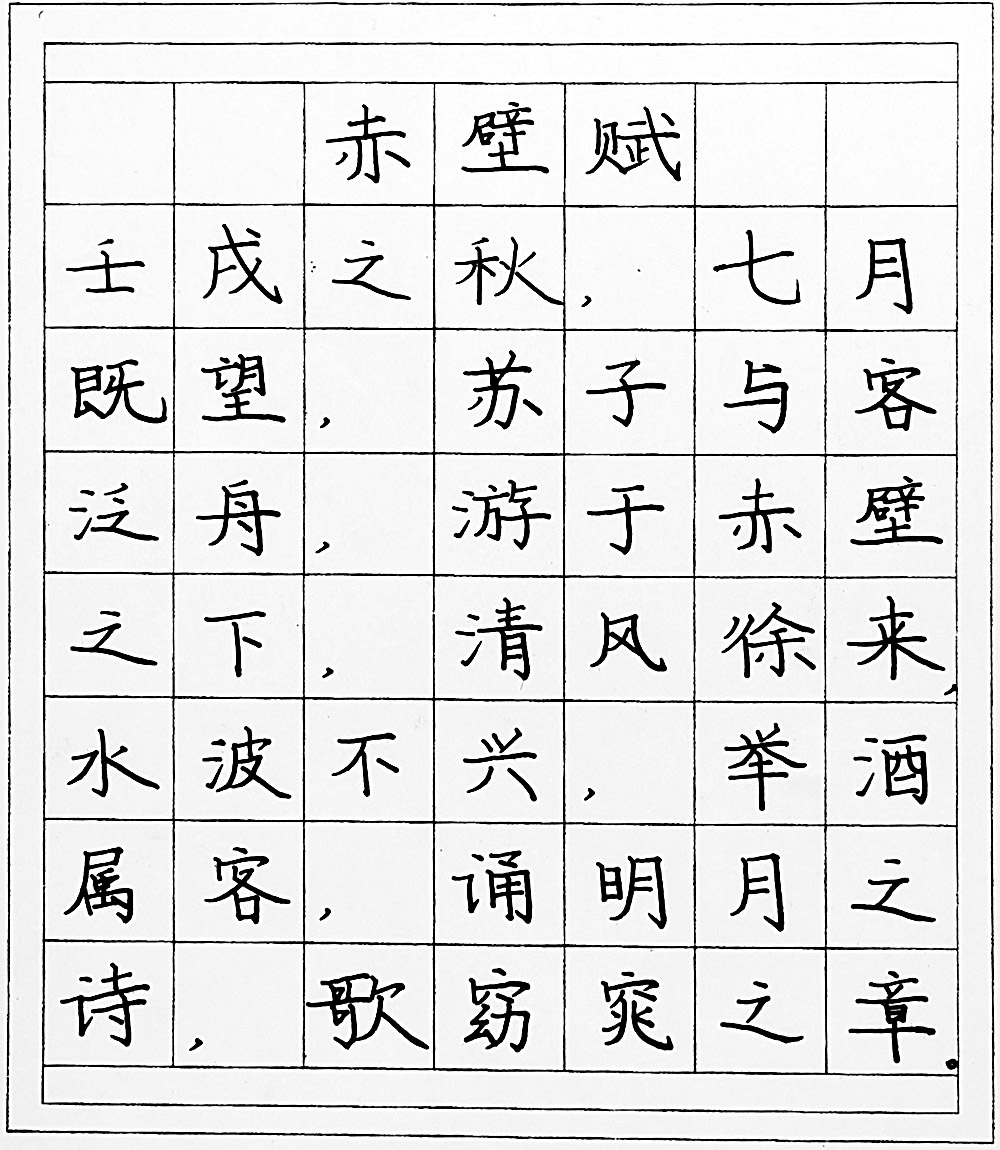 赤壁赋
壬戌之秋，七月
既望，苏子与客
泛舟，游于赤壁
之下，清风徐来，
水波不兴，举酒
属客，诵明月之
诗，歌窈窕之章.